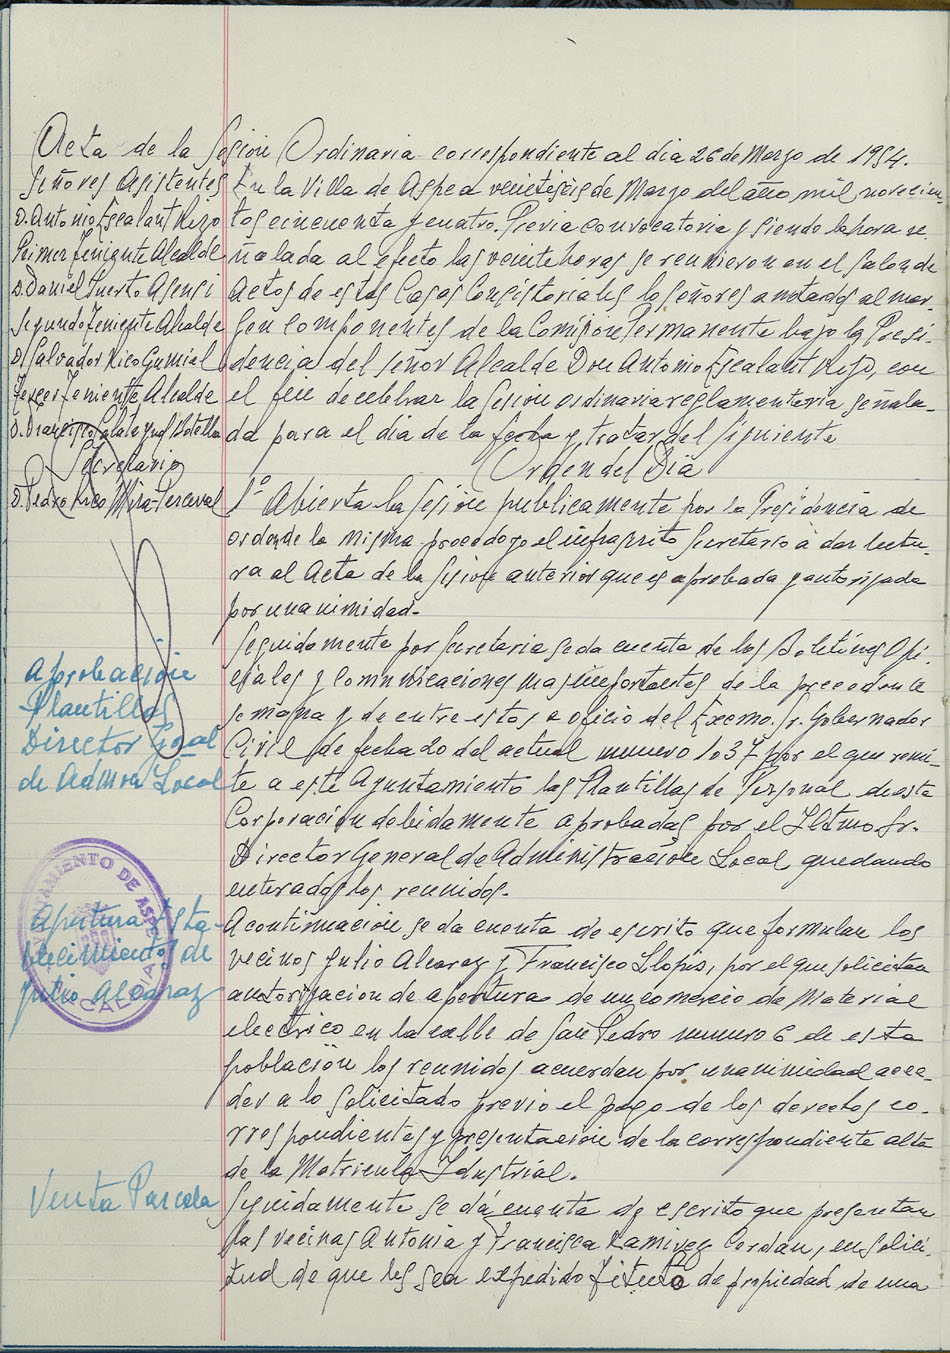 Acta de la Sesion Ordinaria correspondiente al dia 26 de Marzo de 1954.
Señores Asistentes
D. Antonio Escalant Rizo
Primer Teniente Alcalde
D. Daniel Puerto Asensi
Segundo Teniente Alcalde
D. Salvador Rico Gumiel
Tercer Teniente Alcalde
D. Francisco Calatayud Botella
Secretario
D. Pedro Rico Mira-Perceval
En la Villa de Aspe a veintiseis de Marzo del año mil novecien-
tos cincuenta y cuatro. Previa convocatoria y siendo la hora se
ñalada al efecto las veinte horas se reunieron en el Salon de
Actos de estas Casas Consistoriales los señores anotados al mar-
gen componentes de la Comision Permanente bajo la Presi-
dencia del señor Alcalde Don Antonio Escalant Rizo, con
el fin de celebrar la Sesion ordinaria reglamentaria señala-
da para el dia de la fecha y tratar del siguiente
Orden del Dia
1º Abierta la Sesion publicamente por la Presidencia de
orden de la misma procedo yo el infrascrito Secretario a dar lectu-
ra al Acta de la Sesion anterior que es aprobada y autorizada
por unanimidad.
Aprobacion
Plantillas
Director Gral
de Admon Local
Seguidamente por Secretaria se da cuenta de los Boletines Ofi-
ciales y comunicaciones mas importantes de la precedente
semana y de entre estos a oficio del Excmo. Sr. Gobernador
Civil de fecha 20 del actual numero 1037 por el que remi-
te a este Ayuntamiento las Plantillas de Personal de esta
Corporacion debidamente aprobadas por el Iltmo Sr.
Director General de Administracion Local quedando
enterados los reunidos.
AYUNTAMIENTO DE ASPE
ALCALDIA
Apertura Esta-
blecimientos de
Julio Alcaraz
A continuacion se da cuenta de escrito que formulan los
vecinos Julio Alcaraz y Francisco Llopis, por el que solicitan
autorizacion de apertura de un comercio de Material
electrico en la calle de San Pedro numero 6 de esta
poblacion los reunidos acuerdan por unanimidad acce-
der a lo solicitado previo el pago de los derechos co-
rrespondientes y presentacion de la correspondiente alta
de la Matricula Industrial.
Venta Parcela
Seguidamente se dá cuenta de escrito que presentan
las vecinas Antonia y Francisca Ramirez Cerdan, en solici-
tud de que les sea expedido titulo de propiedad de una